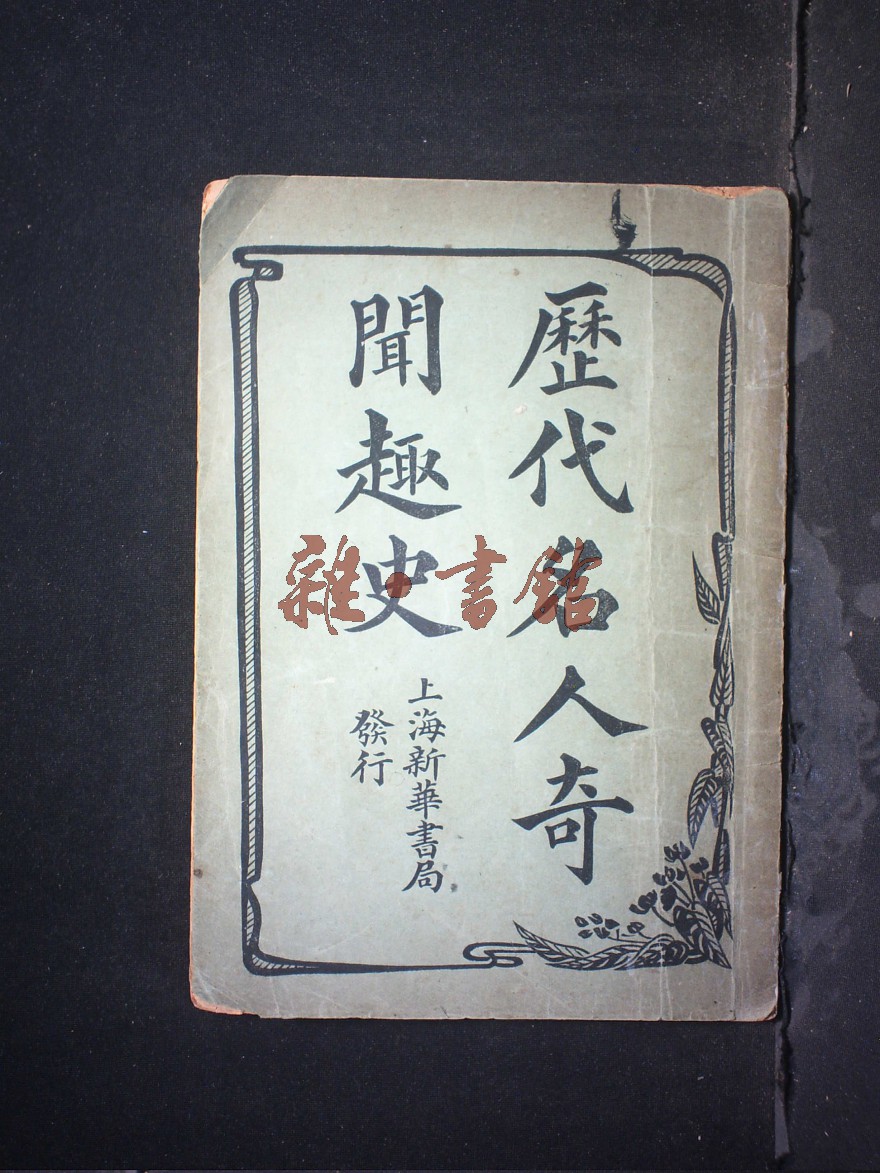 歷代名人奇
聞趣史
上海新華書局
發行
雜·書館